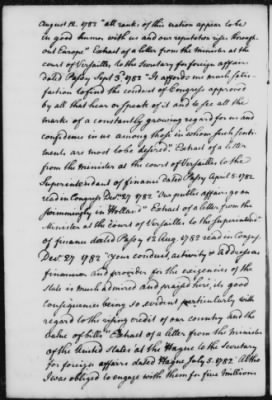 August 12. 1782 "all ranks of this nation appear to be
in good humor with us and our reputation rises through-
out Europe" Extract of a letter from the Minister at the
court of Versailles to the Secretary for foreign affairs
dated Passy Sept 3d. 1782 "It affords me much satis-
faction to find the conduct of Congress approved
by all that hear or speak of it and to see all the
marks of a constantly growing regard for us and
confidence in us among those in whom such senti-
ments are most to be desired". Extract of a letter
from the minister at the court of Versailles to the
Superintendant of finance dated Passy April 8. 1782
read in Congress Decr. 27 1782 "Our public affairs go on
swimmingly in Holland" Extract of a letter from the
Minister at the court of Versailles to the Superintendt
of finance dated Passy 12 Aug. 1782 read in Congress
Decr. 27 1782 "your conduct, activity & address as
financier and provider for the exigencies of the
state is much admired and praised here, its good
consequences being so evident particularly with
regard to the rising credit of our country and the
value of bills" Extract of a letter from the Minister
of the United States at the Hague to the Secretary
for foreign affairs dated Hague July 5. 1782 "Altho
I was obliged to engage with them for five millions